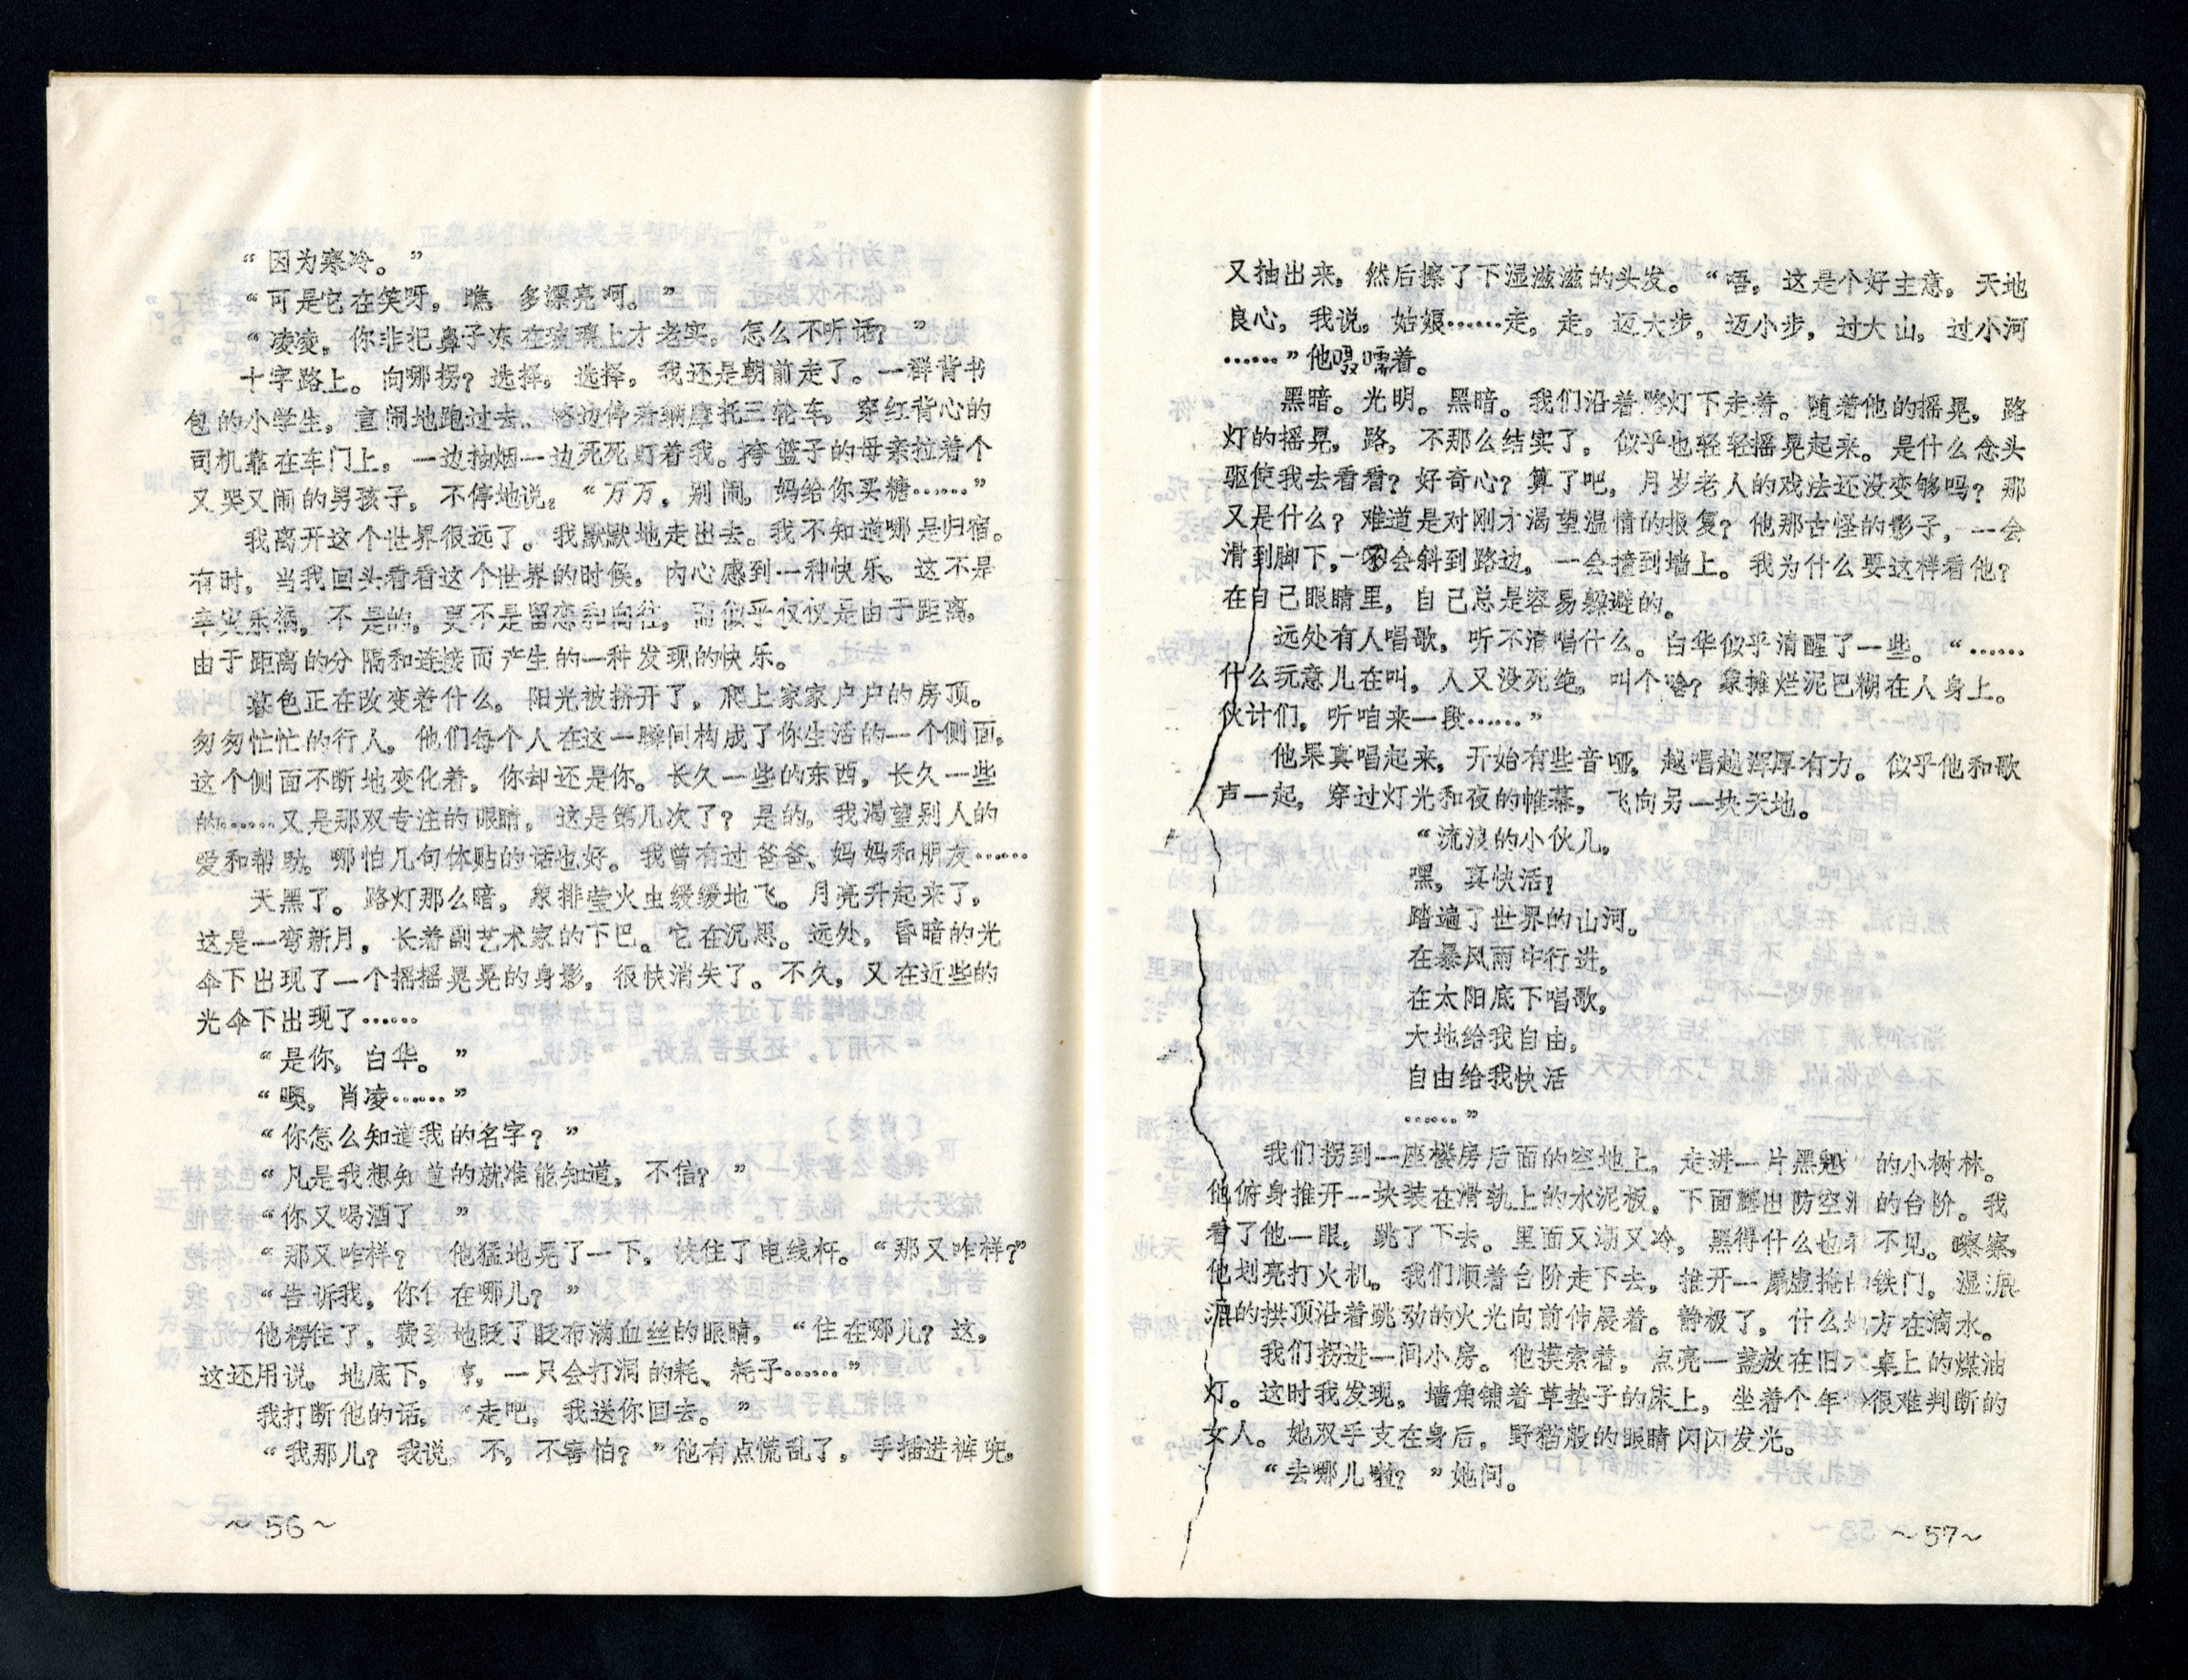 “因为寒冷。”
“可是它在笑呀，瞧，多漂亮呵。”
“凌凌，你非把鼻子冻在玻璃上才老实。怎么不听话？”
十字路上。向哪拐？选择，选择，我还是朝前走了。一群背书
包的小学生，喧闹地跑过去。路边停着辆摩托三轮车，穿红背心的
司机靠在车门上，一边抽烟一边死死盯着我。挎篮子的母亲拉着个
又哭又闹的男孩子，不停地说：“万万，别闹，妈给你买糖……”
我离开这个世界很远了。我默默地走出去。我不知道哪是归宿。
有时，当我回头看看这个世界的时候，内心感到一种快乐。这不是
幸灾乐祸，不是的，更不是留恋和向往，而似乎仅仅是由于距离，
由于距离的分隔和连接而产生的一种发现的快乐。
暮色正在改变着什么。阳光被挤开了，爬上家家户户的房顶。
匆匆忙忙的行人，他们每个人在这一瞬间构成了你生活的一个侧面，
这个侧面不断地变化着，你却还是你。长久一些的东西，长久一些
的……又是那双专注的眼睛，这是第几次了？是的，我渴望别人的
爱和帮助，哪怕几句体贴的话也好。我曾有过爸爸、妈妈和朋友……
天黑了。路灯那么暗，象排萤火虫缓缓地飞。月亮升起来了，
这是一弯新月，长着副艺术家的下巴。它在沉思。远处，昏暗的光
伞下出现了一个摇摇晃晃的身影，很快消失了。不久，又在近些的
光伞下出现了……
“是你，白华。”
“噢，肖凌……”
“你怎么知道我的名字？”
“凡是我想知道的就准能知道，不信？”
“你又喝酒了 ”
“那又咋样？ 他猛地晃了一下，扶住了电线杆。“那又咋样？”
“告诉我，你住在哪儿？”
他楞住了，费劲地眨了眨布满血丝的眼睛，“住在哪儿？这，
这还用说，地底下， 哼，一只会打洞的耗、耗子……”
我打断他的话，“走吧，我送你回去。”
“我那儿？我说 不，不害怕？”他有点慌乱了，手插进裤兜，
~56~
又抽出来，然后擦了下湿滋滋的头发。“唔，这是个好主意，天地
良心，我说，姑娘……走，走，迈大步，迈小步，过大山，过小河
……”他嗫嚅着。
黑暗。光明。黑暗。我们沿着路灯下走着。随着他的摇晃，路
灯的摇晃，路，不那么结实了，似乎也轻轻摇晃起来。是什么念头
驱使我去看看？好奇心？算了吧，月岁老人的戏法还没变够吗？那
又是什么？难道是对刚才渴望温情的报复？他那古怪的影子，一会
滑到脚下，一会斜到路边，一会撞到墙上。我为什么要这样看他？
在自己眼睛里，自己总是容易躲避的。
远处有人唱歌，听不清唱什么。白华似乎清醒了一些。“……
什么玩意儿在叫，人又没死绝，叫个啥？象摊烂泥巴糊在人身上。
伙计们，听咱来一段……”
他果真唱起来，开始有些音哑，越唱越浑厚有力。似乎他和歌
声一起，穿过灯光和夜的帷幕，飞向另一块天地。
“流浪的小伙儿，
嘿，真快活！
踏遍了世界的山河。
在暴风雨中行进，
在太阳底下唱歌，
大地给我自由，
自由给我快活
……”
我们拐到一座楼房后面的空地上，走进一片黑 的小树林。
他俯身推开一块装在滑轨上的水泥板，下面露出防空洞的台阶。我
看了他一眼，跳了下去。里面又潮又冷，黑得什么也看不见。嚓嚓，
他划亮打火机。我们顺着台阶走下去，推开一扇虚掩的铁门，湿漉
漉的拱顶沿着跳动的火光向前伸展着。静极了，什么地方在滴水。
我们拐进一间小房。他摸索着，点亮一盏放在旧木桌上的煤油
灯。这时我发现，墙角铺着草垫子的床上，坐着个年令很难判断的
女人。她双手支在身后，野猫般的眼睛闪闪发光。
“去哪儿啦？”她问。
~57~